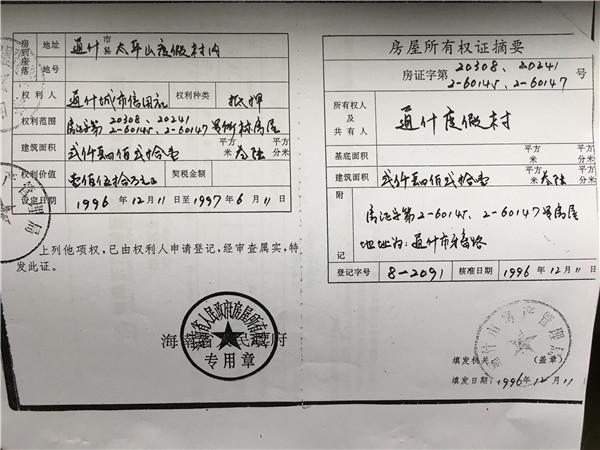 房屋座落
地址 通什市县 太平山度假村内
地号
权利人 通什城市信用社 权利种类 抵押
权利范围 房证字第20308、20241
2-60145、2-60147号所标房屋
建筑面积 贰仟肆佰贰拾壹 平方米 叁陆 平方分米
权利价值 壹佰伍拾万元正 契税金额
设定日期 1996年12月11日至1997年6月11日
上列他项权,已由权利人申请登记,经审查属实,特
发此证。
海南省人民政府
海南省人民政府房屋所有权
专用章
房产管理局
房屋所有权证摘要
房证字第 20308、20241 号
2-60145、2-60147
所有权人及共有人 通什度假村
基底面积 平方米 平方分米
建筑面积 贰仟肆佰贰拾壹 平方米 叁陆 平方分米
附记
房证字第2-60145、2-60147号房屋
地址为:通什市
登记字号 8-2091 核准日期 1996年12月11日
通什市房产管理局
填发机关 (盖章)
填发日期:1996年12月11